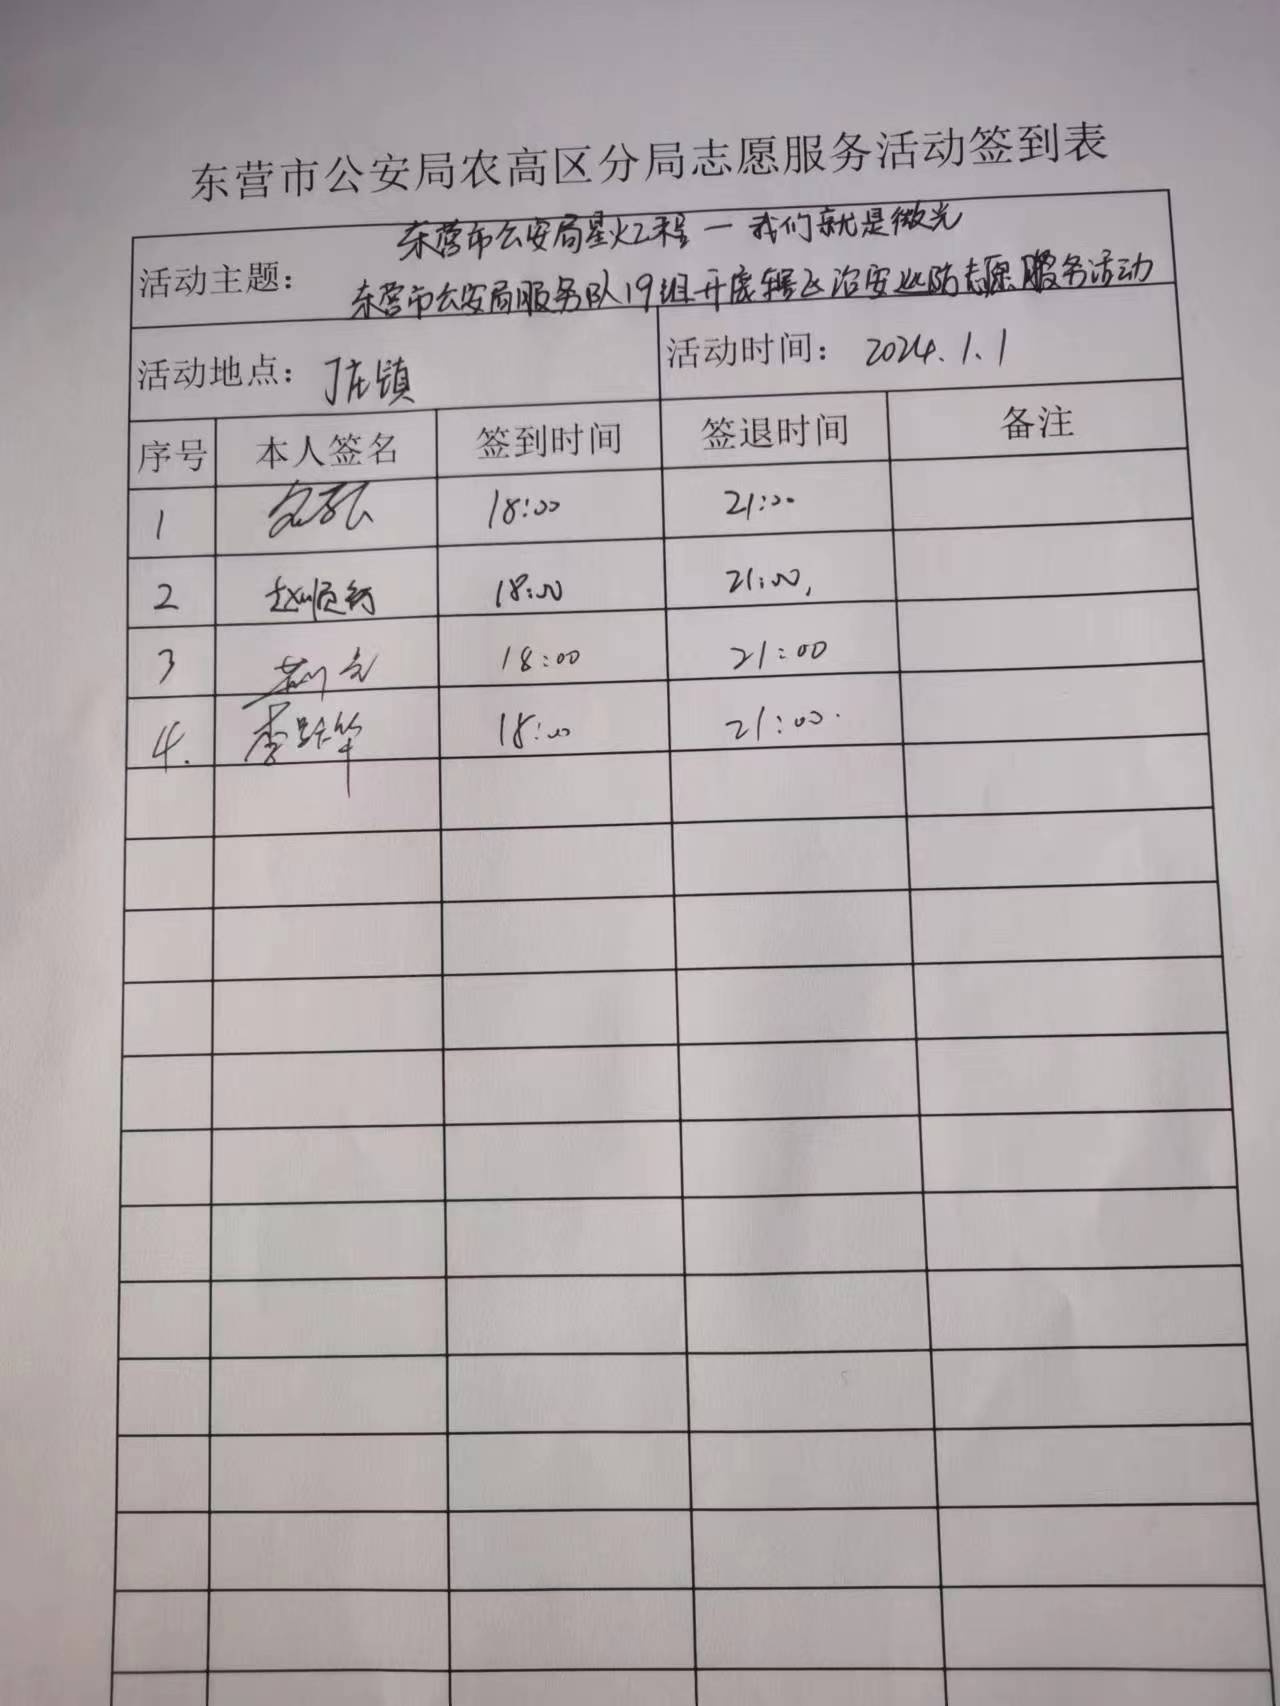 东营市公安局农高区分局志愿服务活动签到表
东营市公安局星火工程一我们就是微光
活动主题：
东营市公安局服务队19组开展辖区治安巡防志愿服务活动
活动地点： 丁庄镇 活动时间： 2024.1.1
序号 本人签名 签到时间 签退时间 备注
1 18:00 21:00
2 赵顺 18:00 21:00
3 18:00 21:00
4. 李跃华 18:00 21:00.